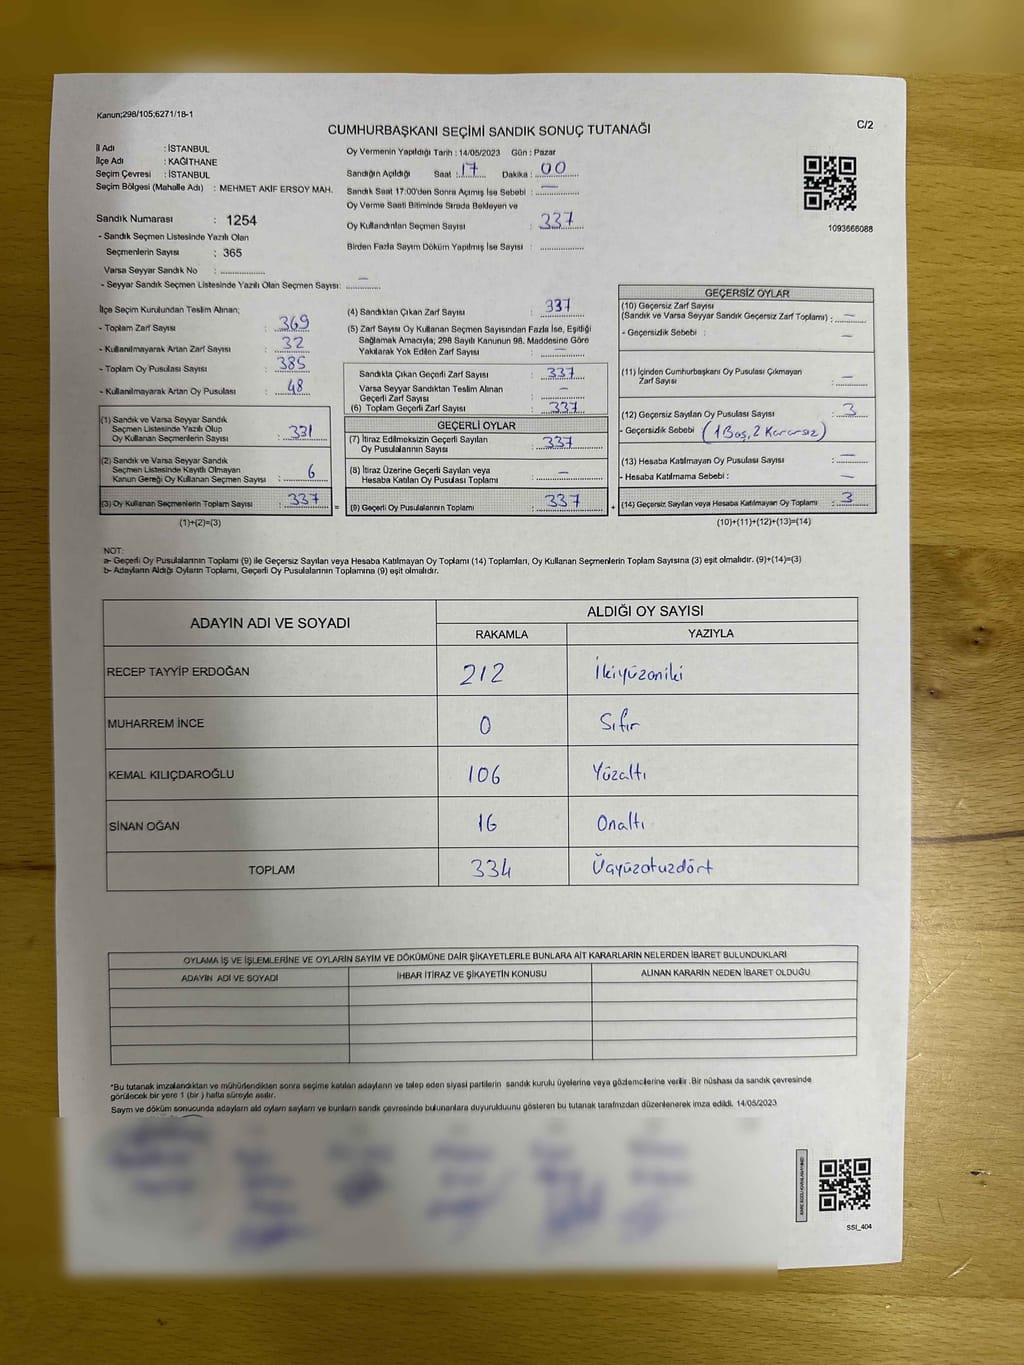 Kanun;298/105;6271/18-1
C/2
CUMHURBAŞKANI SEÇİMİ SANDIK SONUÇ TUTANAĞI
İl Adı : İSTANBUL
İlçe Adı : KAĞITHANE
Seçim Çevresi : İSTANBUL
Seçim Bölgesi (Mahalle Adı) : MEHMET AKİF ERSOY MAH.
Sandık Numarası : 1254
- Sandık Seçmen Listesinde Yazılı Olan
Seçmenlerin Sayısı : 365
Varsa Seyyar Sandık No : ....................
- Seyyar Sandık Seçmen Listesinde Yazılı Olan Seçmen Sayısı: —
Oy Vermenin Yapıldığı Tarih : 14/05/2023 Gün : Pazar
Sandığın Açıldığı Saat : 17 Dakika : 00
Sandık Saat 17:00'den Sonra Açımış İse Sebebi : —
Oy Verme Saati Bitiminde Sırada Bekleyen ve
Oy Kullandırılan Seçmen Sayısı : 337
Birden Fazla Sayım Döküm Yapılmış İse Sayısı : ....................
1093666088
İlçe Seçim Kurulundan Teslim Alınan;
- Toplam Zarf Sayısı : 369
- Kullanılmayarak Artan Zarf Sayısı : 32
- Toplam Oy Pusulası Sayısı : 385
- Kullanılmayarak Artan Oy Pusulası : 48
(1) Sandık ve Varsa Seyyar Sandık
Seçmen Listesinde Yazılı Olup
Oy Kullanan Seçmenlerin Sayısı : 331
(2) Sandık ve Varsa Seyyar Sandık
Seçmen Listesinde Kayıtlı Olmayan
Kanun Gereği Oy Kullanan Seçmen Sayısı : 6
(3) Oy Kullanan Seçmenlerin Toplam Sayısı : 337
(1)+(2)=(3)
(4) Sandıktan Çıkan Zarf Sayısı : 337
(5) Zarf Sayısı Oy Kullanan Seçmen Sayısından Fazla İse, Eşitliği
Sağlamak Amacıyla; 298 Sayılı Kanunun 98. Maddesine Göre
Yakılarak Yok Edilen Zarf Sayısı : —
Sandıkta Çıkan Geçerli Zarf Sayısı : 337
Varsa Seyyar Sandıktan Teslim Alınan
Geçerli Zarf Sayısı : —
(6) Toplam Geçerli Zarf Sayısı : 337
GEÇERLİ OYLAR
(7) İtiraz Edilmeksizin Geçerli Sayılan
Oy Pusulalarının Sayısı : 337
(8) İtiraz Üzerine Geçerli Sayılan veya
Hesaba Katılan Oy Pusulası Toplamı : —
= (9) Geçerli Oy Pusulalarının Toplamı : 337 +
GEÇERSİZ OYLAR
(10) Geçersiz Zarf Sayısı
(Sandık ve Varsa Seyyar Sandık Geçersiz Zarf Toplamı) : —
- Geçersizlik Sebebi : —
(11) İçinden Cumhurbaşkanı Oy Pusulası Çıkmayan
Zarf Sayısı : —
(12) Geçersiz Sayılan Oy Pusulası Sayısı : 3
- Geçersizlik Sebebi (1 Boş, 2 Kararsız)
(13) Hesaba Katılmayan Oy Pusulası Sayısı : —
- Hesaba Katılmama Sebebi : —
(14) Geçersiz Sayılan veya Hesaba Katılmayan Oy Toplamı : 3
(10)+(11)+(12)+(13)=(14)
NOT:
a- Geçerli Oy Pusulalarının Toplamı (9) ile Geçersiz Sayılan veya Hesaba Katılmayan Oy Toplamı (14) Toplamları, Oy Kullanan Seçmenlerin Toplam Sayısına (3) eşit olmalıdır. (9)+(14)=(3)
b- Adayların Aldığı Oyların Toplamı, Geçerli Oy Pusulalarının Toplamına (9) eşit olmalıdır.
ADAYIN ADI VE SOYADI
ALDIĞI OY SAYISI
RAKAMLA YAZIYLA
RECEP TAYYİP ERDOĞAN 212 İkiyüzoniki
MUHARREM İNCE 0 Sıfır
KEMAL KILIÇDAROĞLU 106 Yüzaltı
SİNAN OĞAN 16 Onaltı
TOPLAM 334 Üçyüzotuzdört
OYLAMA İŞ VE İŞLEMLERİNE VE OYLARIN SAYIM VE DÖKÜMÜNE DAİR ŞİKAYETLERLE BUNLARA AİT KARARLARIN NELERDEN İBARET BULUNDUKLARI
ADAYIN ADI VE SOYADI İHBAR İTİRAZ VE ŞİKAYETİN KONUSU ALINAN KARARIN NEDEN İBARET OLDUĞU
*Bu tutanak imzalandıktan ve mühürlendikten sonra seçime katılan adayların ve talep eden siyasi partilerin sandık kurulu üyelerine veya gözlemcilerine verilir .Bir nüshası da sandık çevresinde
görülecek bir yere 1 (bir ) hafta süreyle asılır.
Sayım ve döküm sonucunda adayların aldı oyların sayların ve bunların sandık çevresinde bulunanlara duyurulduunu gösteren bu tutanak tarafmzdan düzenlenerek imza edildi. 14/05/2023
SSI_404